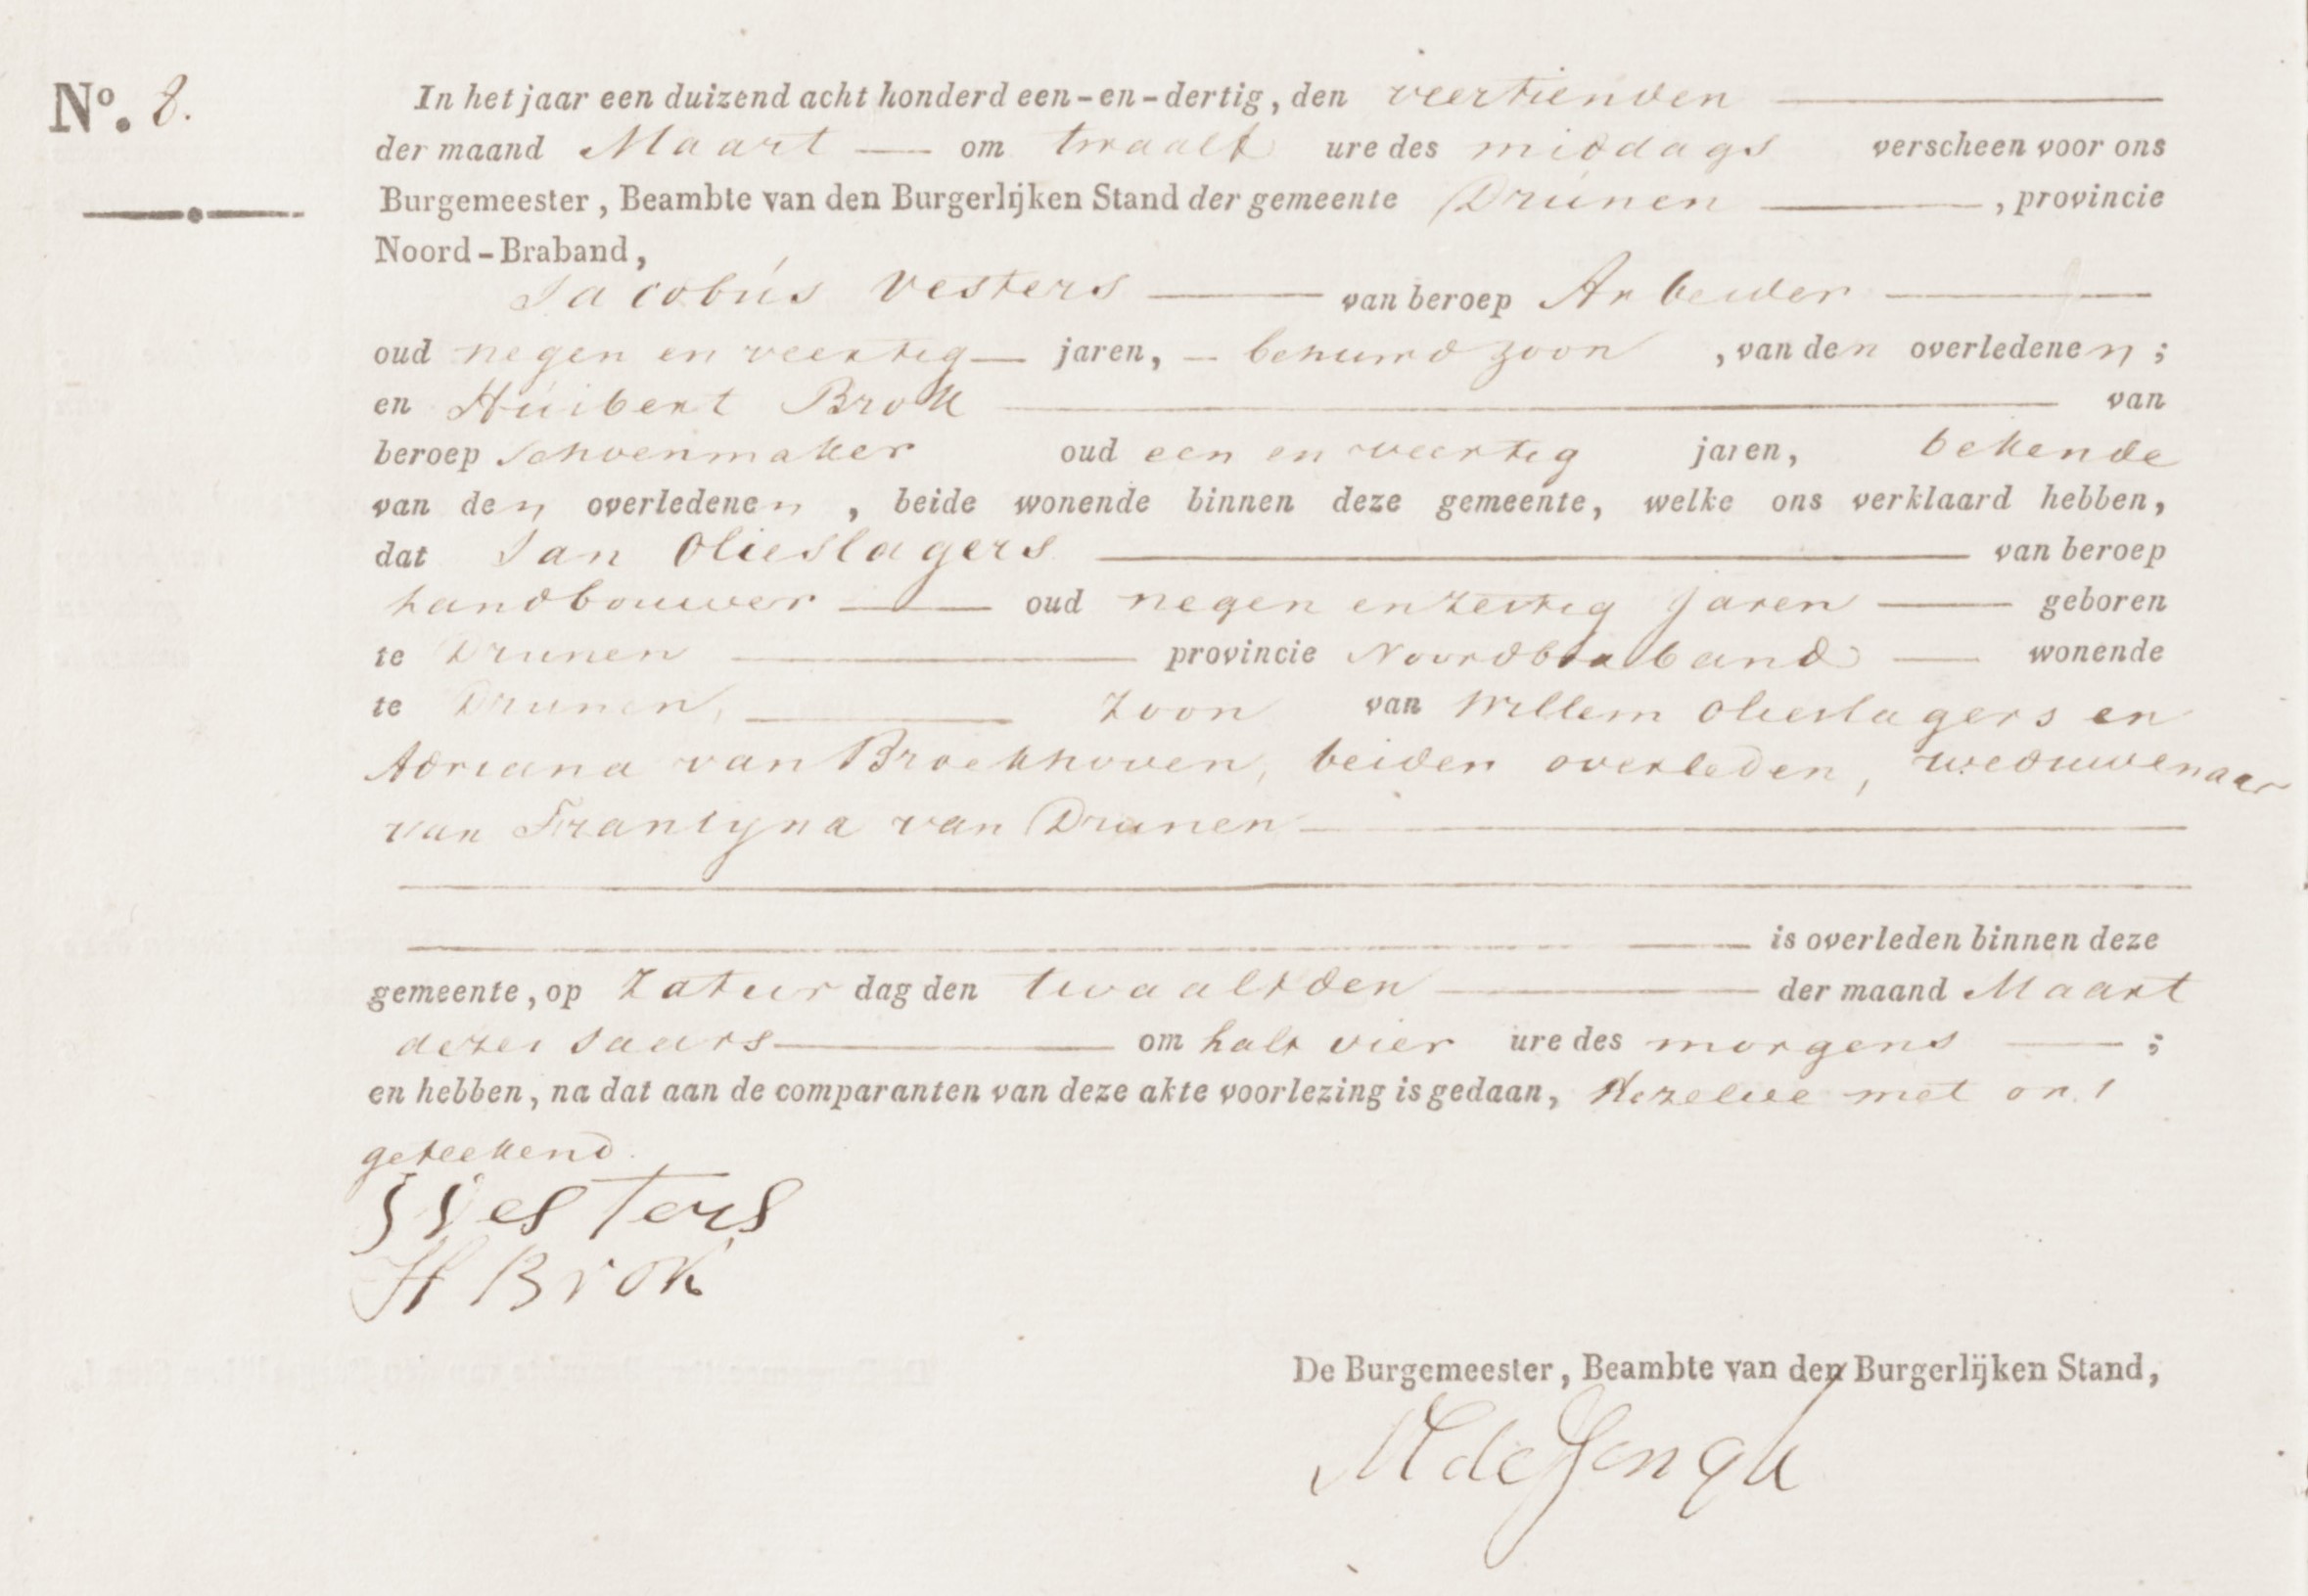 Nº. 8.
In het jaar een duizend acht honderd een-en-dertig, den veertienden
der maand Maart om twaalf ure des middags verscheen voor ons
Burgemeester, Beambte van den Burgerlijken Stand der gemeente Drúnen, provincie
Noord-Braband,
Jacobús Vesters van beroep Arbeider
oud negen en veertig jaren, behuwd zoon, van den overledenen;
en Húibert Brok van
beroep Schoenmaker oud een en veertig jaren, bekende
van den overledenen, beide wonende binnen deze gemeente, welke ons verklaard hebben,
dat Jan Olieslagers van beroep
Landbouwer oud negen en zestig jaren geboren
te Drunen provincie Noordbraband wonende
te Drunen, Zoon van Willem Olieslagers en
Adriana van Broekhoven, beiden overleden, weduwenaar
van Fransyna van Drunen
is overleden binnen deze
gemeente, op Zatur dag den twaalfden der maand Maart
dezes Jaars om half vier ure des morgens;
en hebben, na dat aan de comparanten van deze akte voorlezing is gedaan, dezelve met ons
geteekend.
J Vesters
H Brok
De Burgemeester, Beambte van den Burgerlijken Stand,
M de Jongh